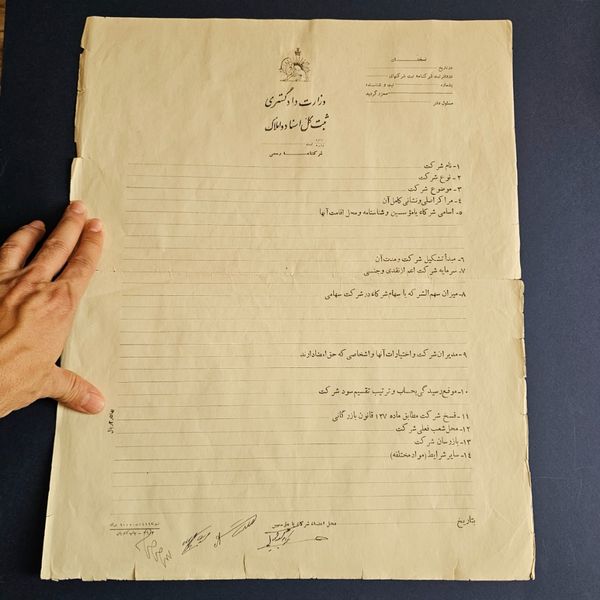 وزارت دادگستری
ثبت کل اسناد و املاک
شرکتنامه رسمی
در تاریخ
در دفتر ثبت شرکتنامه ثبت شرکتهای
بشماره ثبت و شناسنامه
صادر گردید
مسئول دفتر
۱- نام شرکت
۲- نوع شرکت
۳- موضوع شرکت
۴- مراکز اصلی و نشانی کامل آن
۵- اسامی شرکاء یا مؤسسین و شناسنامه و محل اقامت آنها
۶- مبدأ تشکیل شرکت و مدت آن
۷- سرمایه شرکت اعم از نقدی و جنسی
۸- میزان سهم الشرکه یا سهام شرکاء در شرکت سهامی
۹- مدیران شرکت و اختیارات آنها و اشخاصی که حق امضاء دارند
۱۰- موقع رسیدگی بحساب و ترتیب تقسیم سود شرکت
۱۱- فسخ شرکت مطابق ماده ۱۳۷ قانون بازرگانی
۱۲- محل شعب فعلی شرکت
۱۳- بازرسان شرکت
۱۴- سایر شرایط (مواد مختلفه)
بتاریخ
محل امضاء شرکاء یا مؤسسین